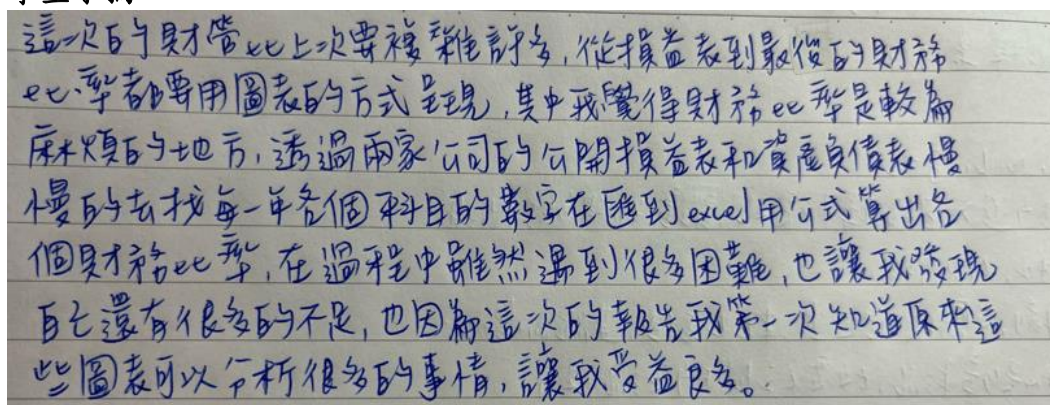 這次的財管比上次要複雜許多,從損益表到最後的財務
比率都要用圖表的方式呈現,其中我覺得財務比率是較為
麻煩的地方,透過兩家公司的公開損益表和資產負債表慢
慢的去找每一年各個科目的數字在匯到excel用公式算出各
個財務比率,在過程中雖然遇到很多困難,也讓我發現
自己還有很多的不足,也因為這次的報告我第一次知道原來這
些圖表可以分析很多的事情,讓我受益良多。